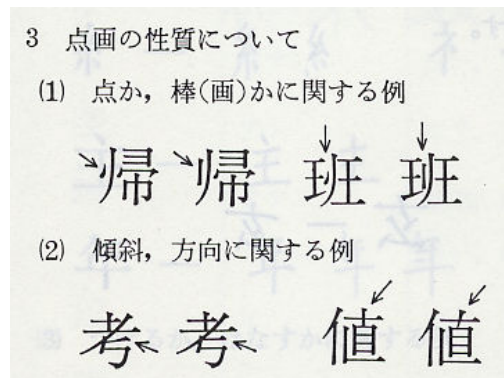 3 点画の性質について
(1) 点か,棒(画)かに関する例
帰 帰 班 班
(2) 傾斜,方向に関する例
考 考 値 値